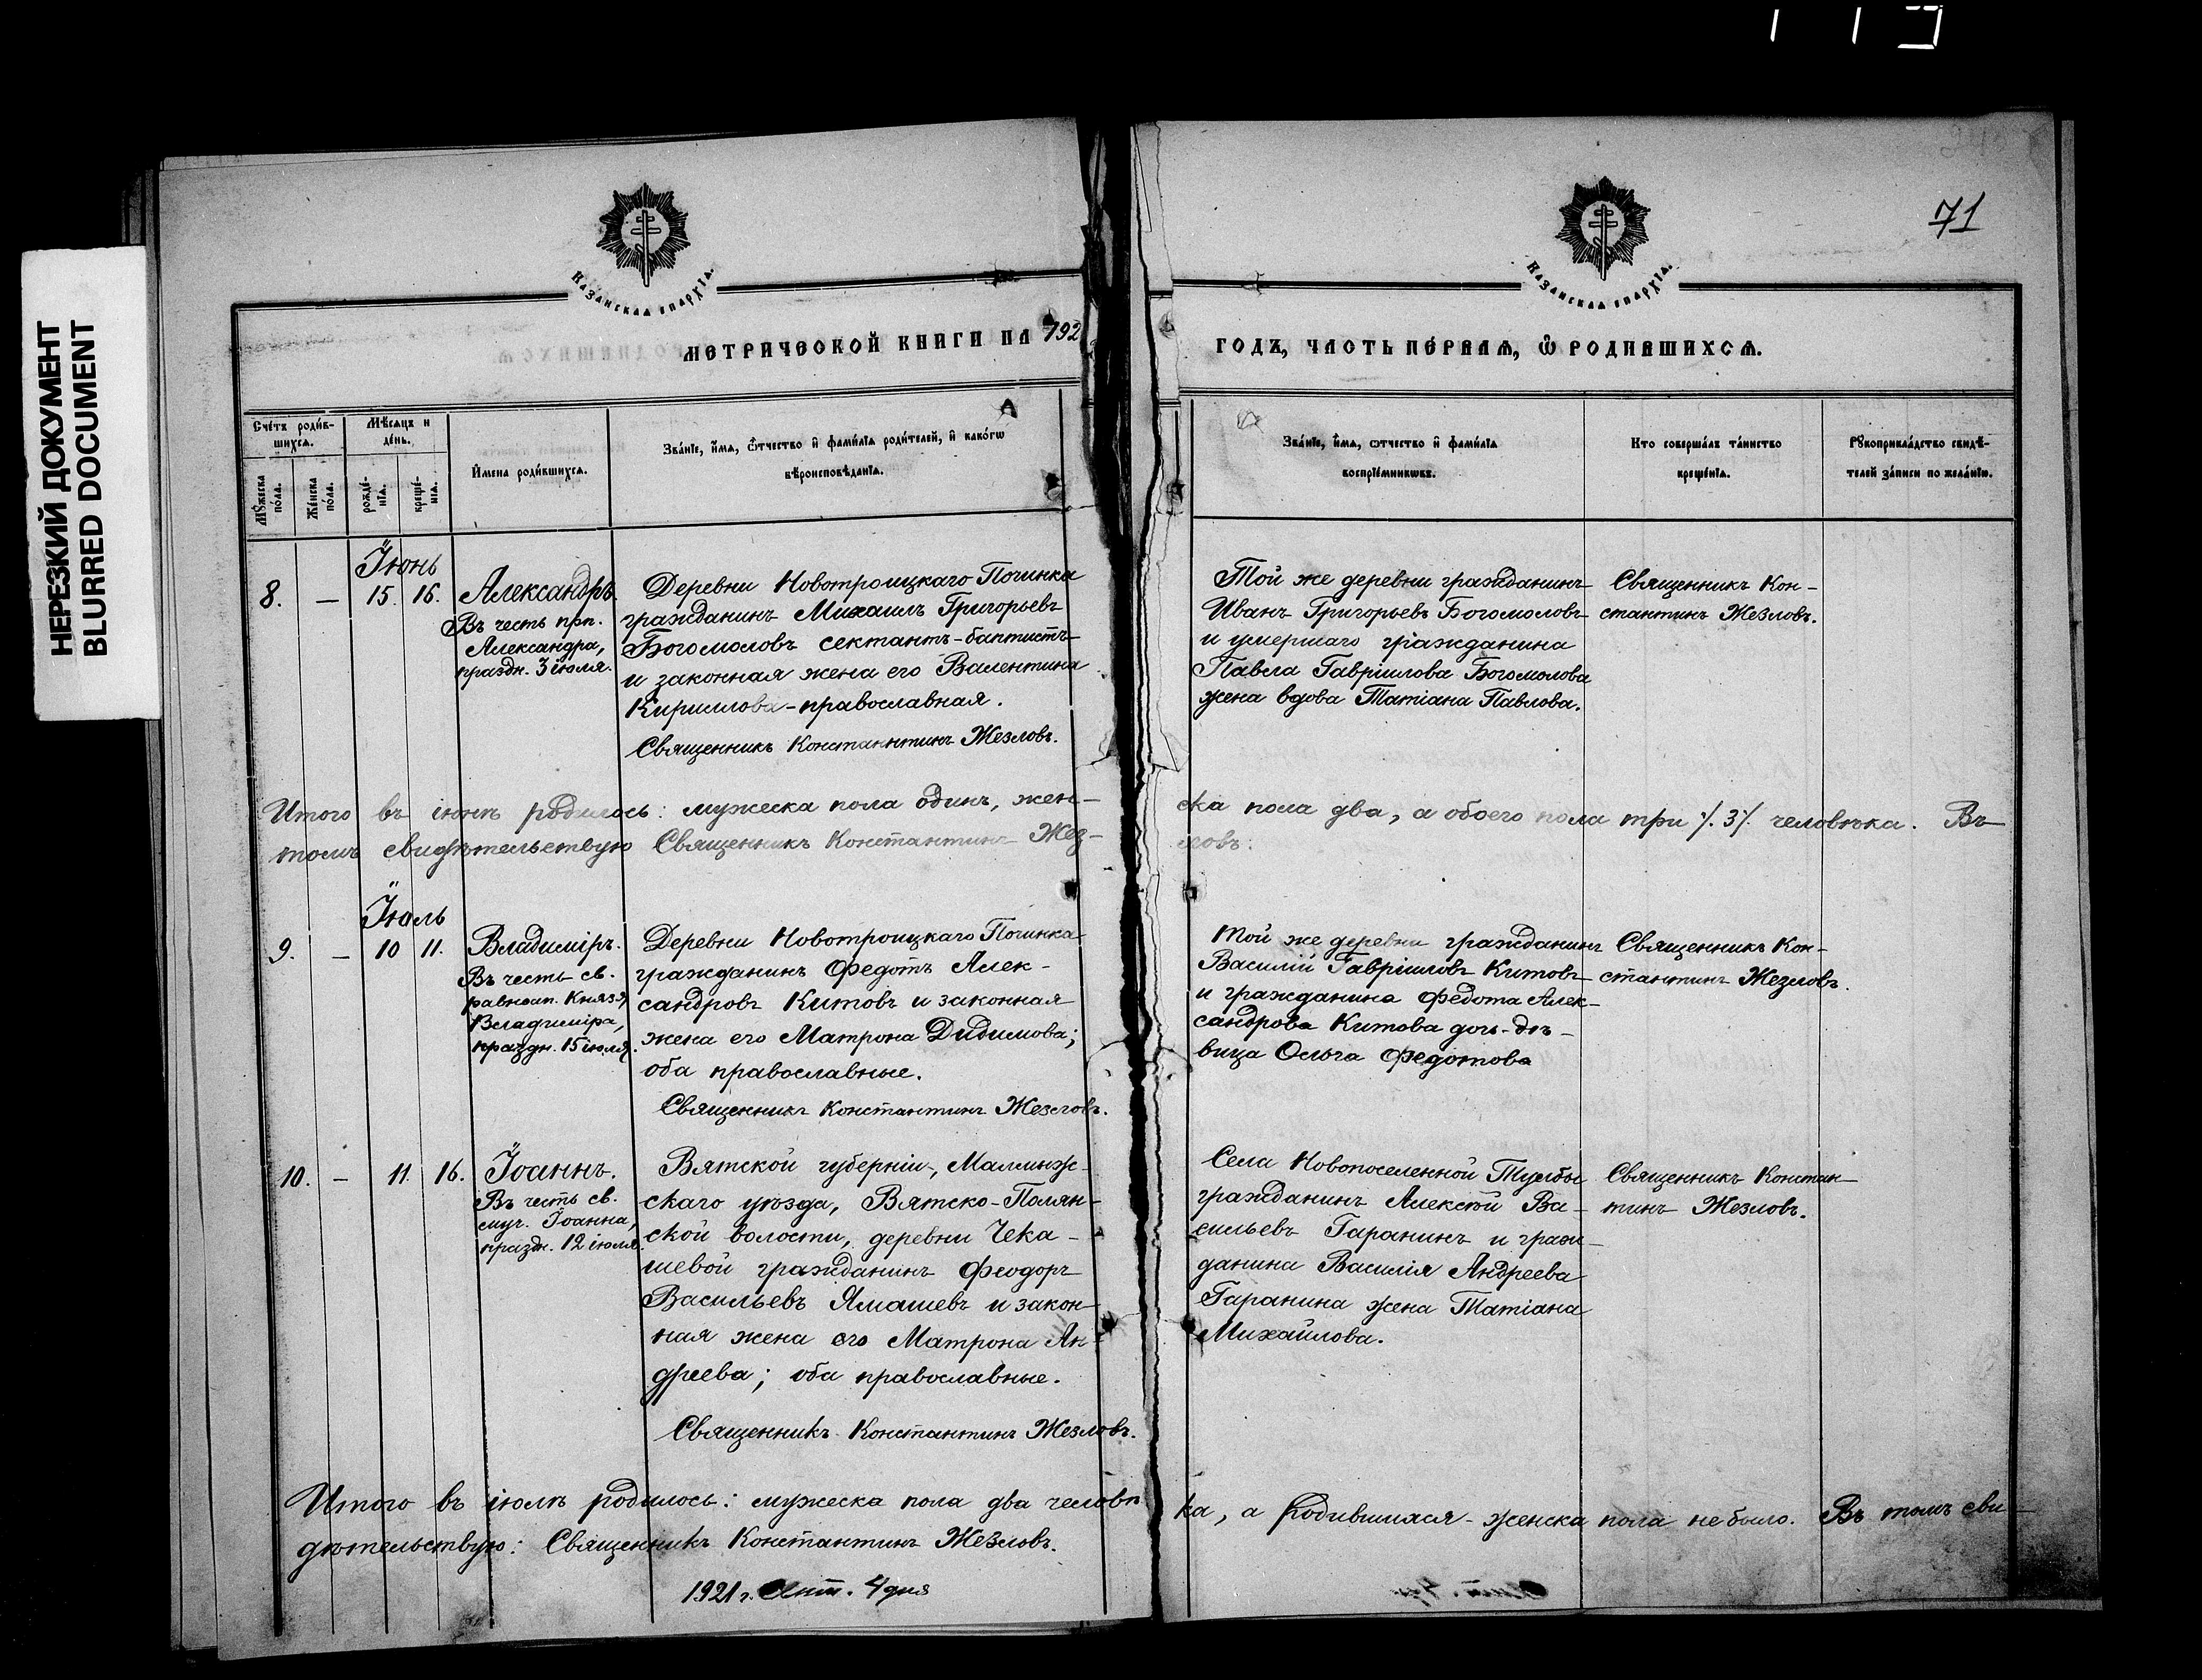 НЕРЕЗКИЙ ДОКУМЕНТ
BLURRED DOCUMENT
71
КАЗАНСКАЯ ЕПАРХІЯ.
КАЗАНСКАЯ ЕПАРХІЯ.
МЕТРИЧЕСКОЙ КНИГИ НА 192
ГОДЪ, ЧАСТЬ ПЕРВАЯ, Ѡ РОДИВШИХСЯ.
Счетъ родив-
шихся.
Мужеска
пола.
Женска
пола.
Мѣсяцъ и
день.
рожде-
нія.
креще-
нія.
Имена родившихся.
Званіе, имя, ѿчество и фамилія родителей, и какогѡ
вѣроисповѣданія.
Званіе, имя, ѿчество и фамилія
воспріемниковъ.
Кто совершалъ таинство
крещенія.
Рукоприкладство свидѣ-
телей записи по желанію.
Іюнь
8. — 15. 16.
Александръ.
Въ честь прп.
Александра,
праздн. 3 іюля.
Деревни Новотроицкаго Починка
гражданинъ Михаилъ Григорьевъ
Богомоловъ сектантъ-баптистъ
и законная жена его Валентина
Кириллова - православная.
Священникъ Константинъ Жезловъ.
Той же деревни гражданинъ
Иванъ Григорьевъ Богомоловъ
и умершаго гражданина
Павла Гавріилова Богомолова
жена вдова Татіана Павлова.
Священникъ Кон-
стантинъ Жезловъ.
Итого въ іюнѣ родилось: мужеска пола одинъ, жен-
ска пола два, а обоего пола три ٪ 3٪ человѣка. Въ
томъ свидѣтельствую Священникъ Константинъ Жез-
ловъ.
Іюль
9. — 10 11.
Владиміръ.
Въ честь св.
равноап. Князя
Владиміра,
праздн. 15 іюля.
Деревни Новотроицкаго Починка
гражданинъ Федотъ Алек-
сандровъ Китовъ и законная
жена его Матрона Дидимова;
оба православные.
Священникъ Константинъ Жезловъ.
Той же деревни гражданинъ
Василій Гавріиловъ Китовъ
и гражданина Федота Алек-
сандрова Китова дочь-дѣ-
вица Ольга Федотова
Священникъ Кон-
стантинъ Жезловъ.
10. — 11. 16.
Іоаннъ.
Въ честь св.
муч. Іоанна,
праздн. 12 іюля.
Вятской губерніи, Малмыж-
скаго уѣзда, Вятско-Полян-
ской волости, деревни Чека-
шевой гражданинъ Феодоръ
Васильевъ Ямашевъ и закон-
ная жена его Матрона Ан-
дреева; оба православные.
Священникъ Константинъ Жезловъ.
Села Новопоселенной Тулбы
гражданинъ Алексѣй Ва-
сильевъ Гаранинъ и граж-
данина Василія Андреева
Гаранина жена Татіана
Михайлова.
Священникъ Констан-
тинъ Жезловъ.
Итого въ іюлѣ родилось: мужеска пола два человѣ
ка, а родившихся - женска пола не было. Въ томъ сви-
дѣтельствую: Священникъ Константинъ Жезловъ.
1921 г. 4 дня